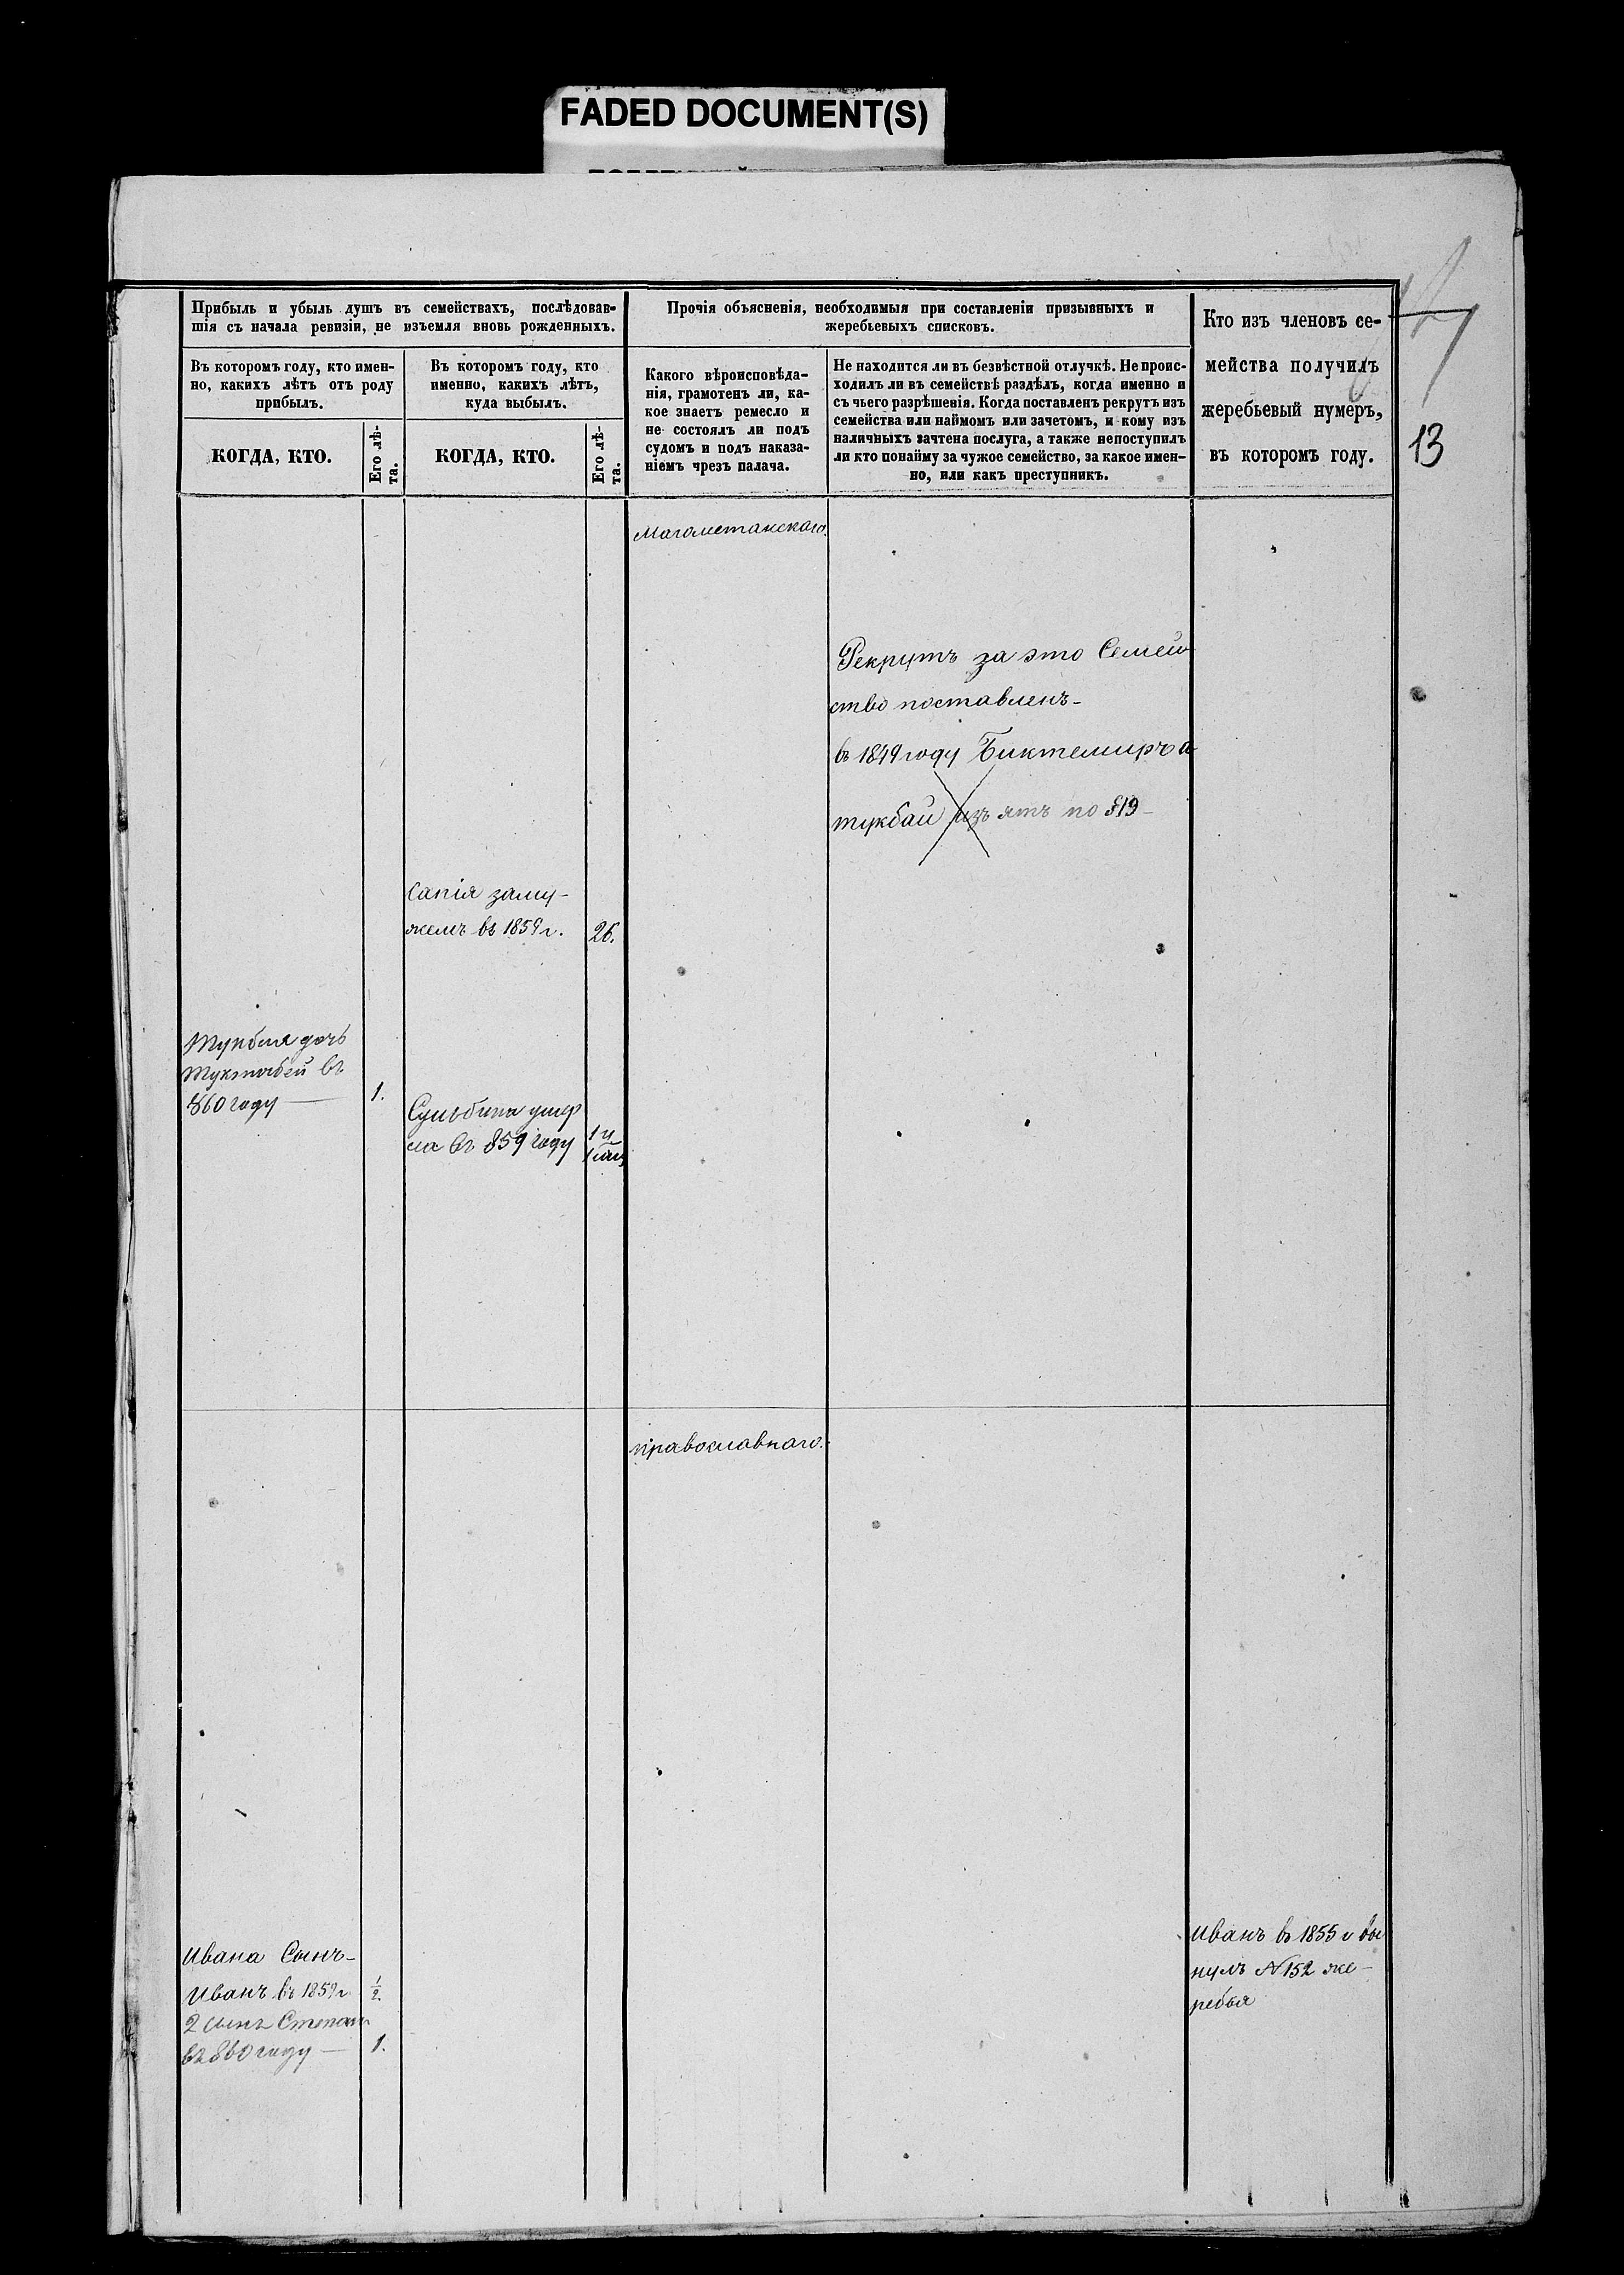 FADED DOCUMENT(S)
Прибыль и убыль душъ въ семействахъ, послѣдовав-
шія съ начала ревизіи, не изъемля вновь рожденныхъ.
Прочія объясненія, необходимыя при составленіи призывныхъ и
жеребьевыхъ списковъ.
Кто изъ членовъ се-
мейства получилъ
жеребьевый нумеръ,
въ которомъ году.
13
Въ которомъ году, кто имен-
но, какихъ лѣтъ отъ роду
прибылъ.
Въ которомъ году, кто
именно, какихъ лѣтъ,
куда выбылъ.
Какого вѣроисповѣда-
нія, грамотенъ ли, ка-
кое знаетъ ремесло и
не состоялъ ли подъ
судомъ и подъ наказа-
ніемъ чрезъ палача.
Не находится ли въ безвѣстной отлучкѣ. Не проис-
ходилъ ли въ семействѣ раздѣлъ, когда именно и
съ чьего разрѣшенія. Когда поставленъ рекрутъ изъ
семейства или наймомъ или зачетомъ, и кому изъ
наличныхъ зачтена послуга, а также непоступилъ
ли кто понайму за чужое семейство, за какое имен-
но, или какъ преступникъ.
КОГДА, КТО.
Его лѣ-
та.
КОГДА, КТО.
Его лѣ-
та.
Магометанскаго.
Рекрутъ за это Семей
ство поставленъ-
въ 1849 году Биктемиръ а
тукбай изъятъ по §19-
Сапія заму-
жемъ въ 1859 г. 26.
дочь
Туктабей въ
860 году — 1.
умер
ла въ 859 году
православнаго.
Ивана Сынъ-
Иванъ въ 1859 г. 1/2.
2 сынъ Степанъ
въ 860 году — 1.
Иванъ въ 1855 г вы
нулъ №152 же-
ребья